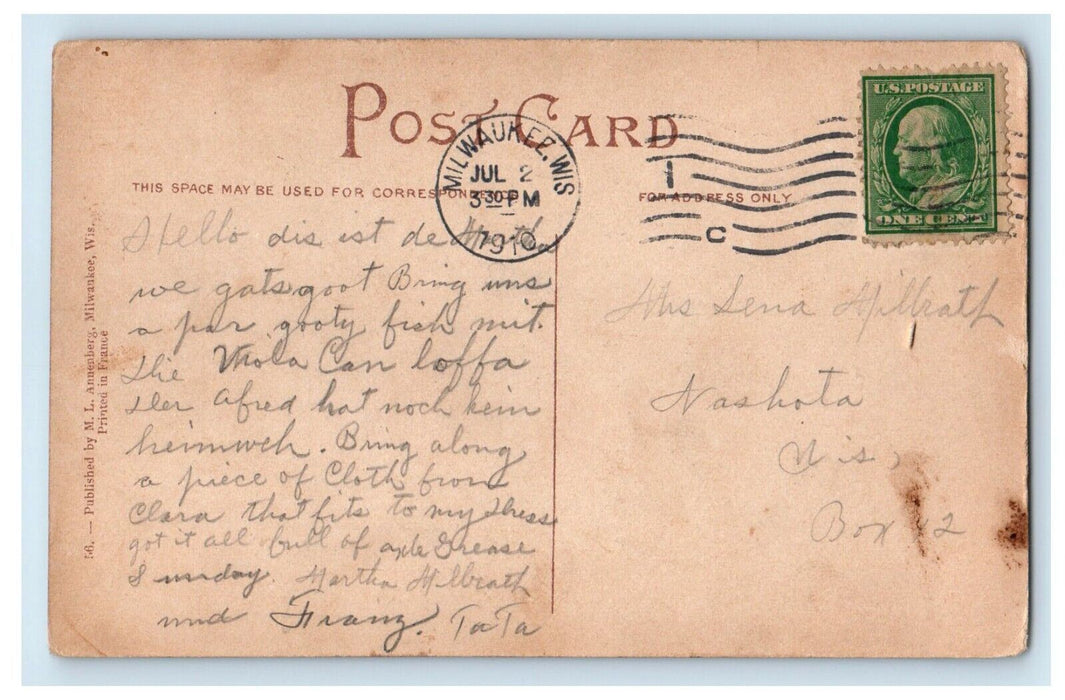 POST CARD
THIS SPACE MAY BE USED FOR CORRESPONDENCE
FOR ADDRESS ONLY
MILWAUKEE, WIS
JUL 2
3 30 PM
1910
1
C
U.S. POSTAGE
ONE CENT
56. — Published by M. L. Annenberg, Milwaukee, Wis.
Printed in France
Hello dis ist de
we gats goot Bring uns
a par gooty fish mit.
She Viola Can loffa
Der Afred hat noch kein
heimweh. Bring along
a piece of Cloth from
Clara that fits to my dress
got it all full of axle Grease
Sunday. Martha Hillrath
und Franz. Ta Ta
Mrs Lena Hillrath
Nashota
Wis,
Box 12